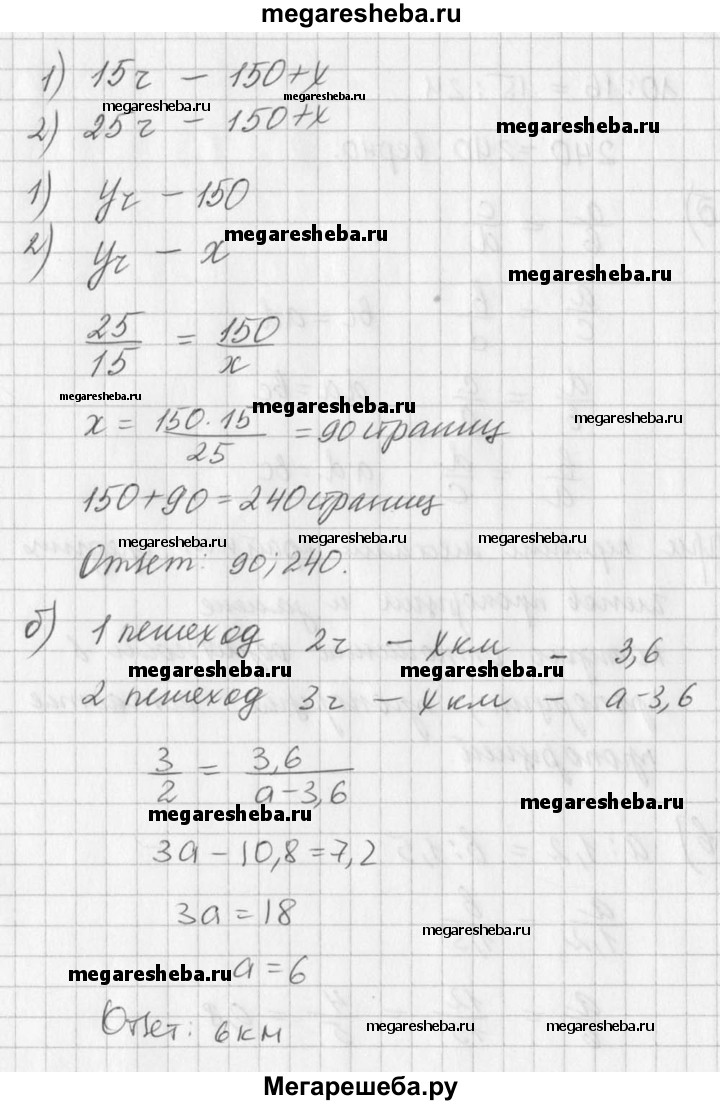 megaresheba.ru
1) 15ч – 150+x
megaresheba.ru megaresheba.ru
2) 25ч – 150+x
megaresheba.ru
1) yч – 150
2) yч – x
megaresheba.ru
megaresheba.ru
25/15 = 150/x
megaresheba.ru megaresheba.ru
x = 150·15/25 = 90 страниц
megaresheba.ru
150+90=240 страниц
megaresheba.ru megaresheba.ru
Ответ: 90; 240.
б) 1 пешеход 2ч – xкм – 3,6
megaresheba.ru megaresheba.ru
2 пешеход 3ч – xкм – a-3,6
3/2 = 3,6/a-3,6
megaresheba.ru megaresheba.ru
3a-10,8=7,2
3a=18
megaresheba.ru
megaresheba.ru a=6
Ответ: 6км
megaresheba.ru megaresheba.ru
Мегарешеба.ру